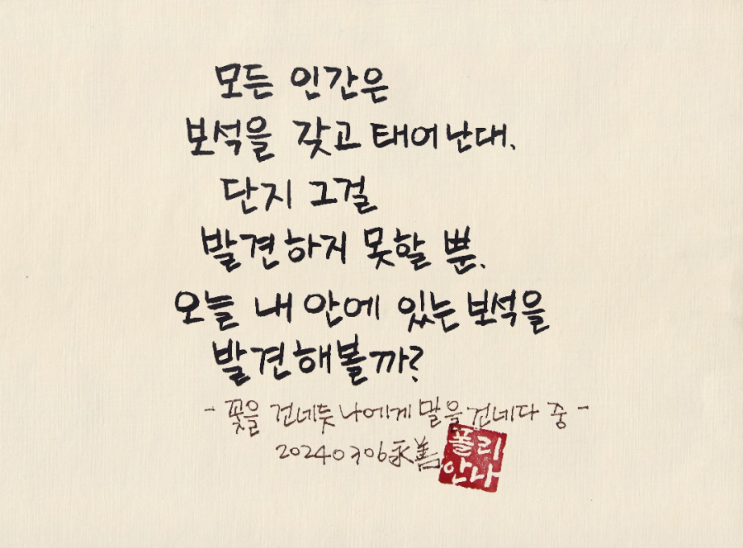 모든 인간은
보석을 갖고 태어난대.
단지 그걸
발견하지 못할 뿐.
오늘 내 안에 있는 보석을
발견해볼까?
- 꽃을 건네듯 나에게 말을 건네다 중 -
20240306 永善
폴리
안나